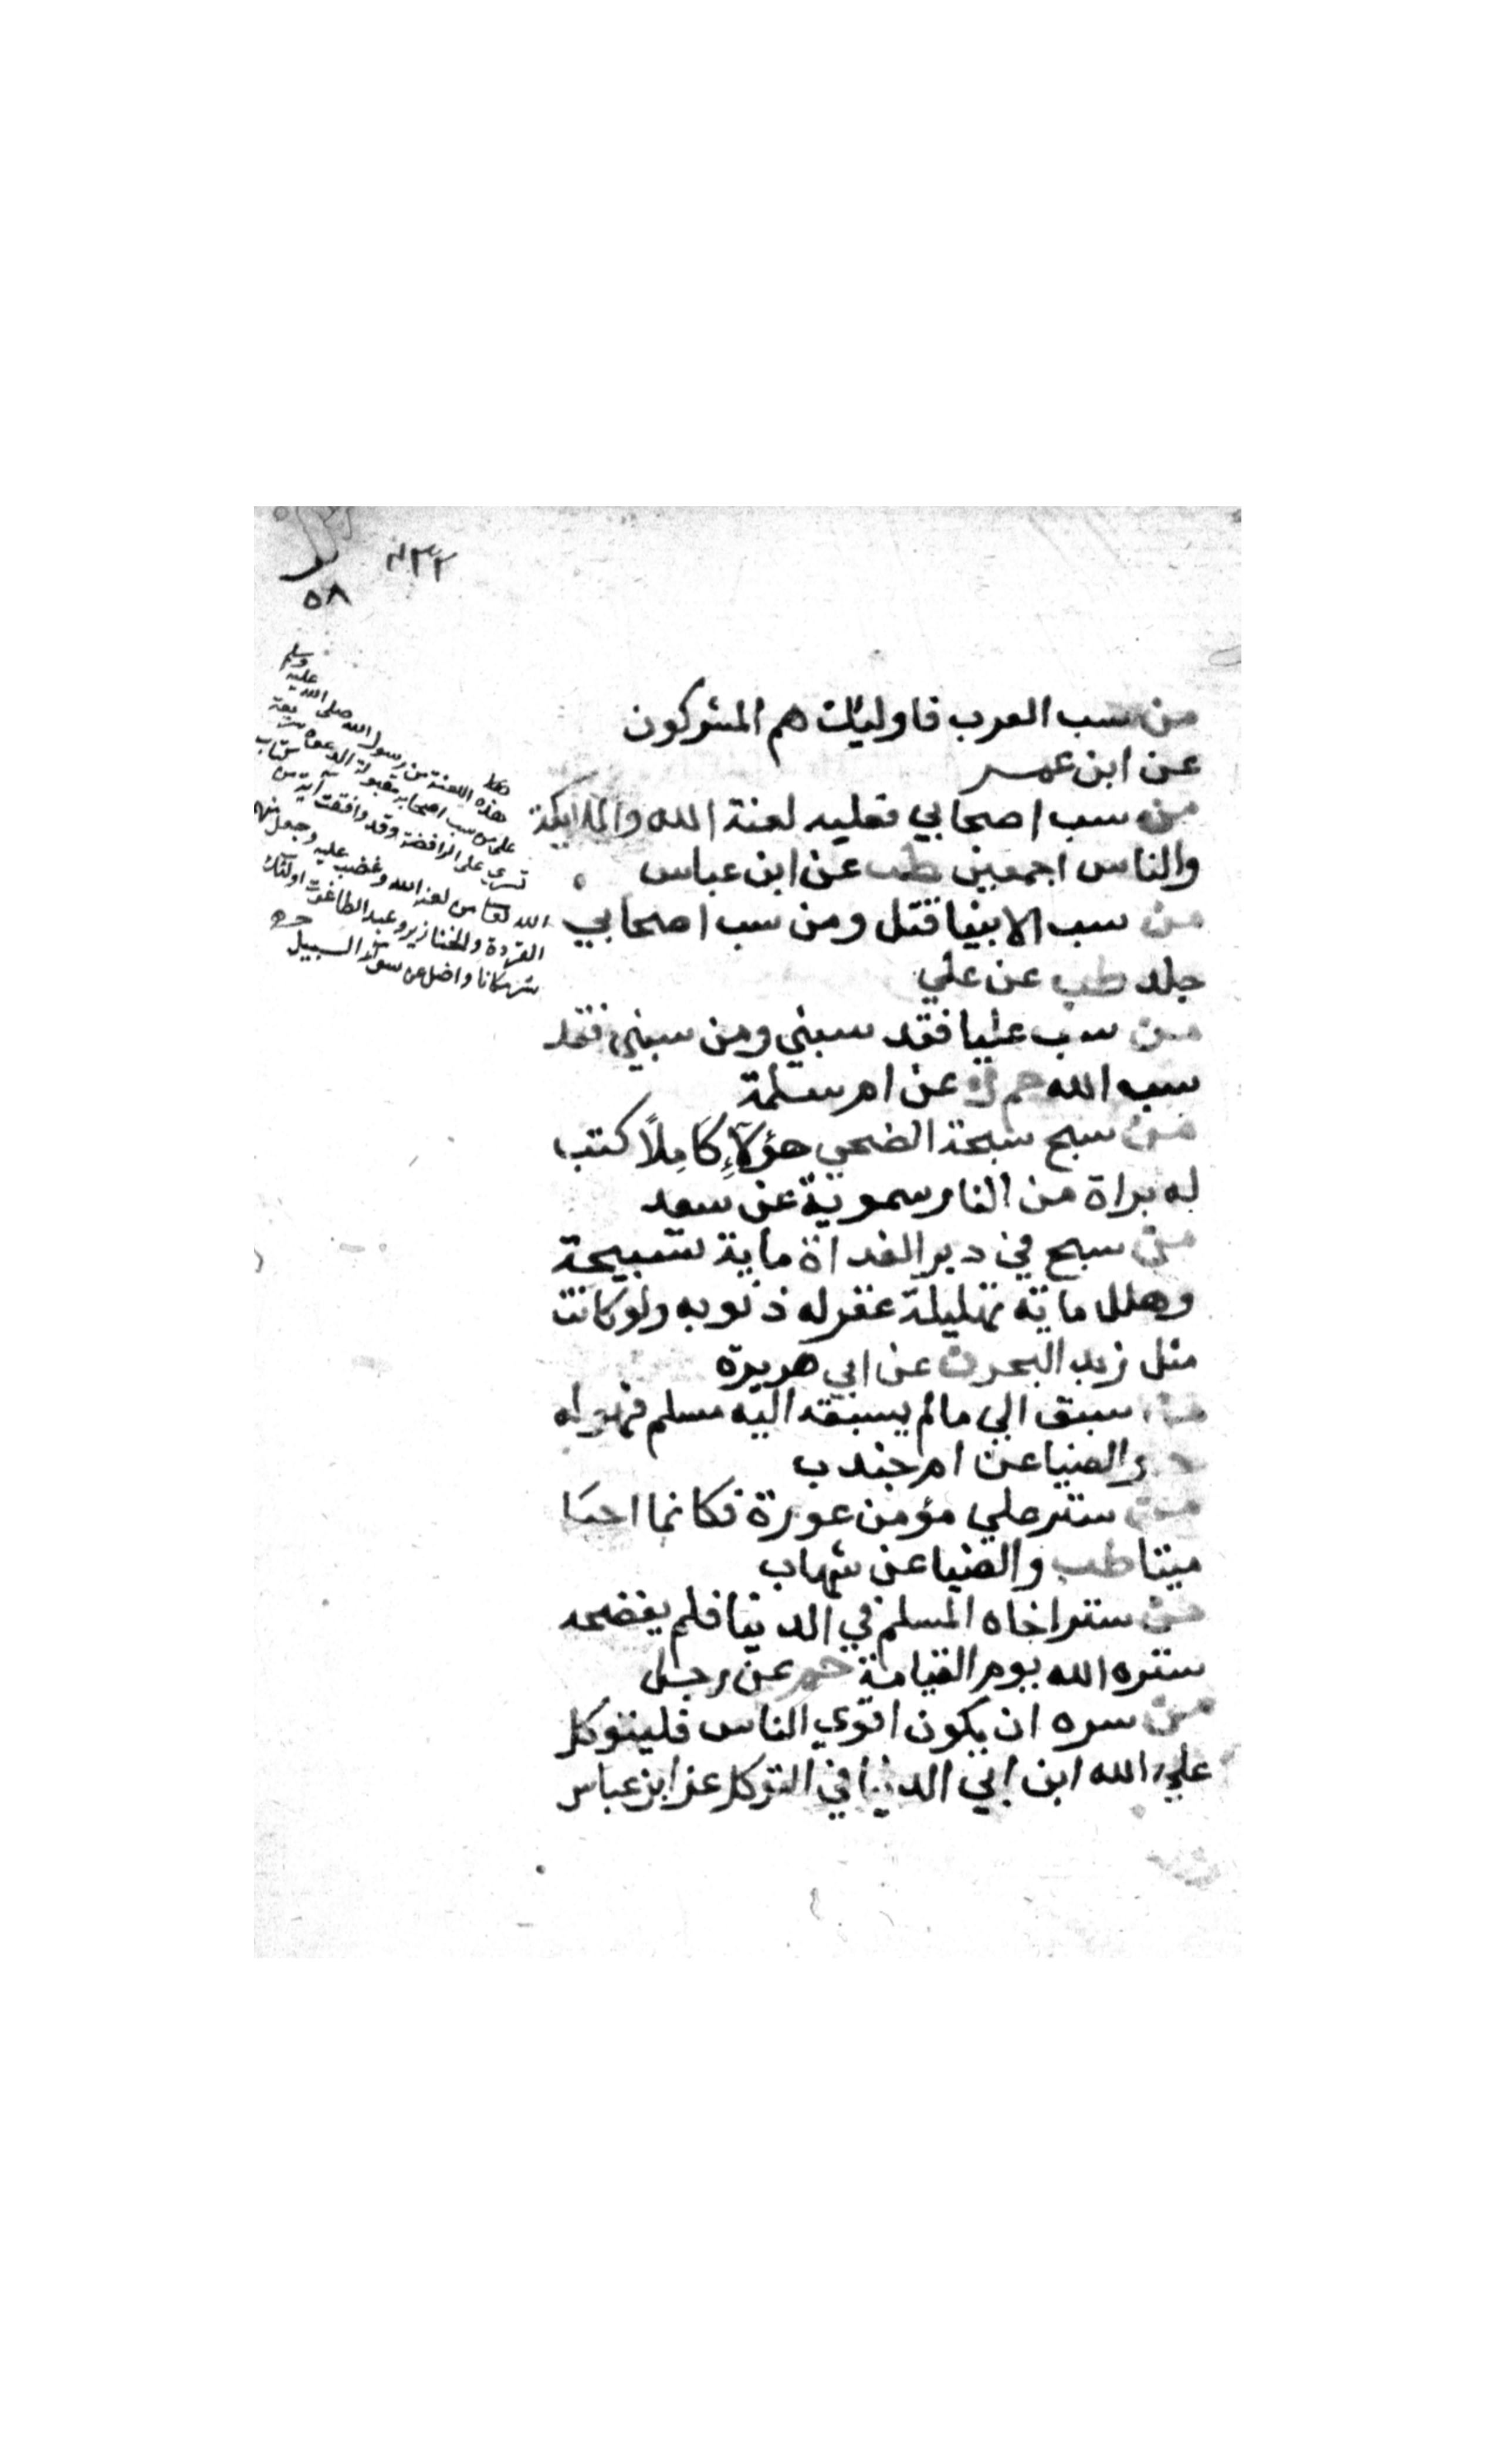 ٥٨
من سب العرب فاوليك هم المشركون
عن ابن عمر
من سب اصحابي فعليه لعنة الله والملايكة
والناس اجمعين طب عن ابن عباس
من سب الانبيا قتل ومن سب اصحابي
جلد طب عن علي
من سب عليا فقد سبني ومن سبني فقد
سب الله حم ك عن ام سلمة
من سبح سبحة الضحي حؤلاً كاملاً كتب
له براة من النار سموية عن سعد
من سبح في دبر الغداة ماية تسبيحة
وهلل ماية تهليلة غفر له ذنوبه ولو كانت
مثل زبد البحر ن عن ابي هريرة
من سبق الي مالم يسبقه اليه مسلم فهو له
د والضيا عن ام جندب
من ستر علي مؤمن عورة فكانما احيا
ميتا طب والضيا عن شهاب
من ستر اخاه المسلم في الدنيا فلم يفضحه
ستره الله يوم القيامة حم عن رجل
من سره ان يكون اقوي الناس فليتوكل
علي الله ابن ابي الدنيا في التوكل عن ابن عباس
هذه اللعنة من رسول الله صلى الله عليه وسلم
على من سب اصحابه مقبولة الدعوة
تسري على الرافضة وقد وافقت آية من كتاب
الله تعا من لعنه الله وغضب عليه وجعل منهم
القردة والخنازير وعبد الطاغوت اولئك
شر مكانا واضل عن سوآء السبيل